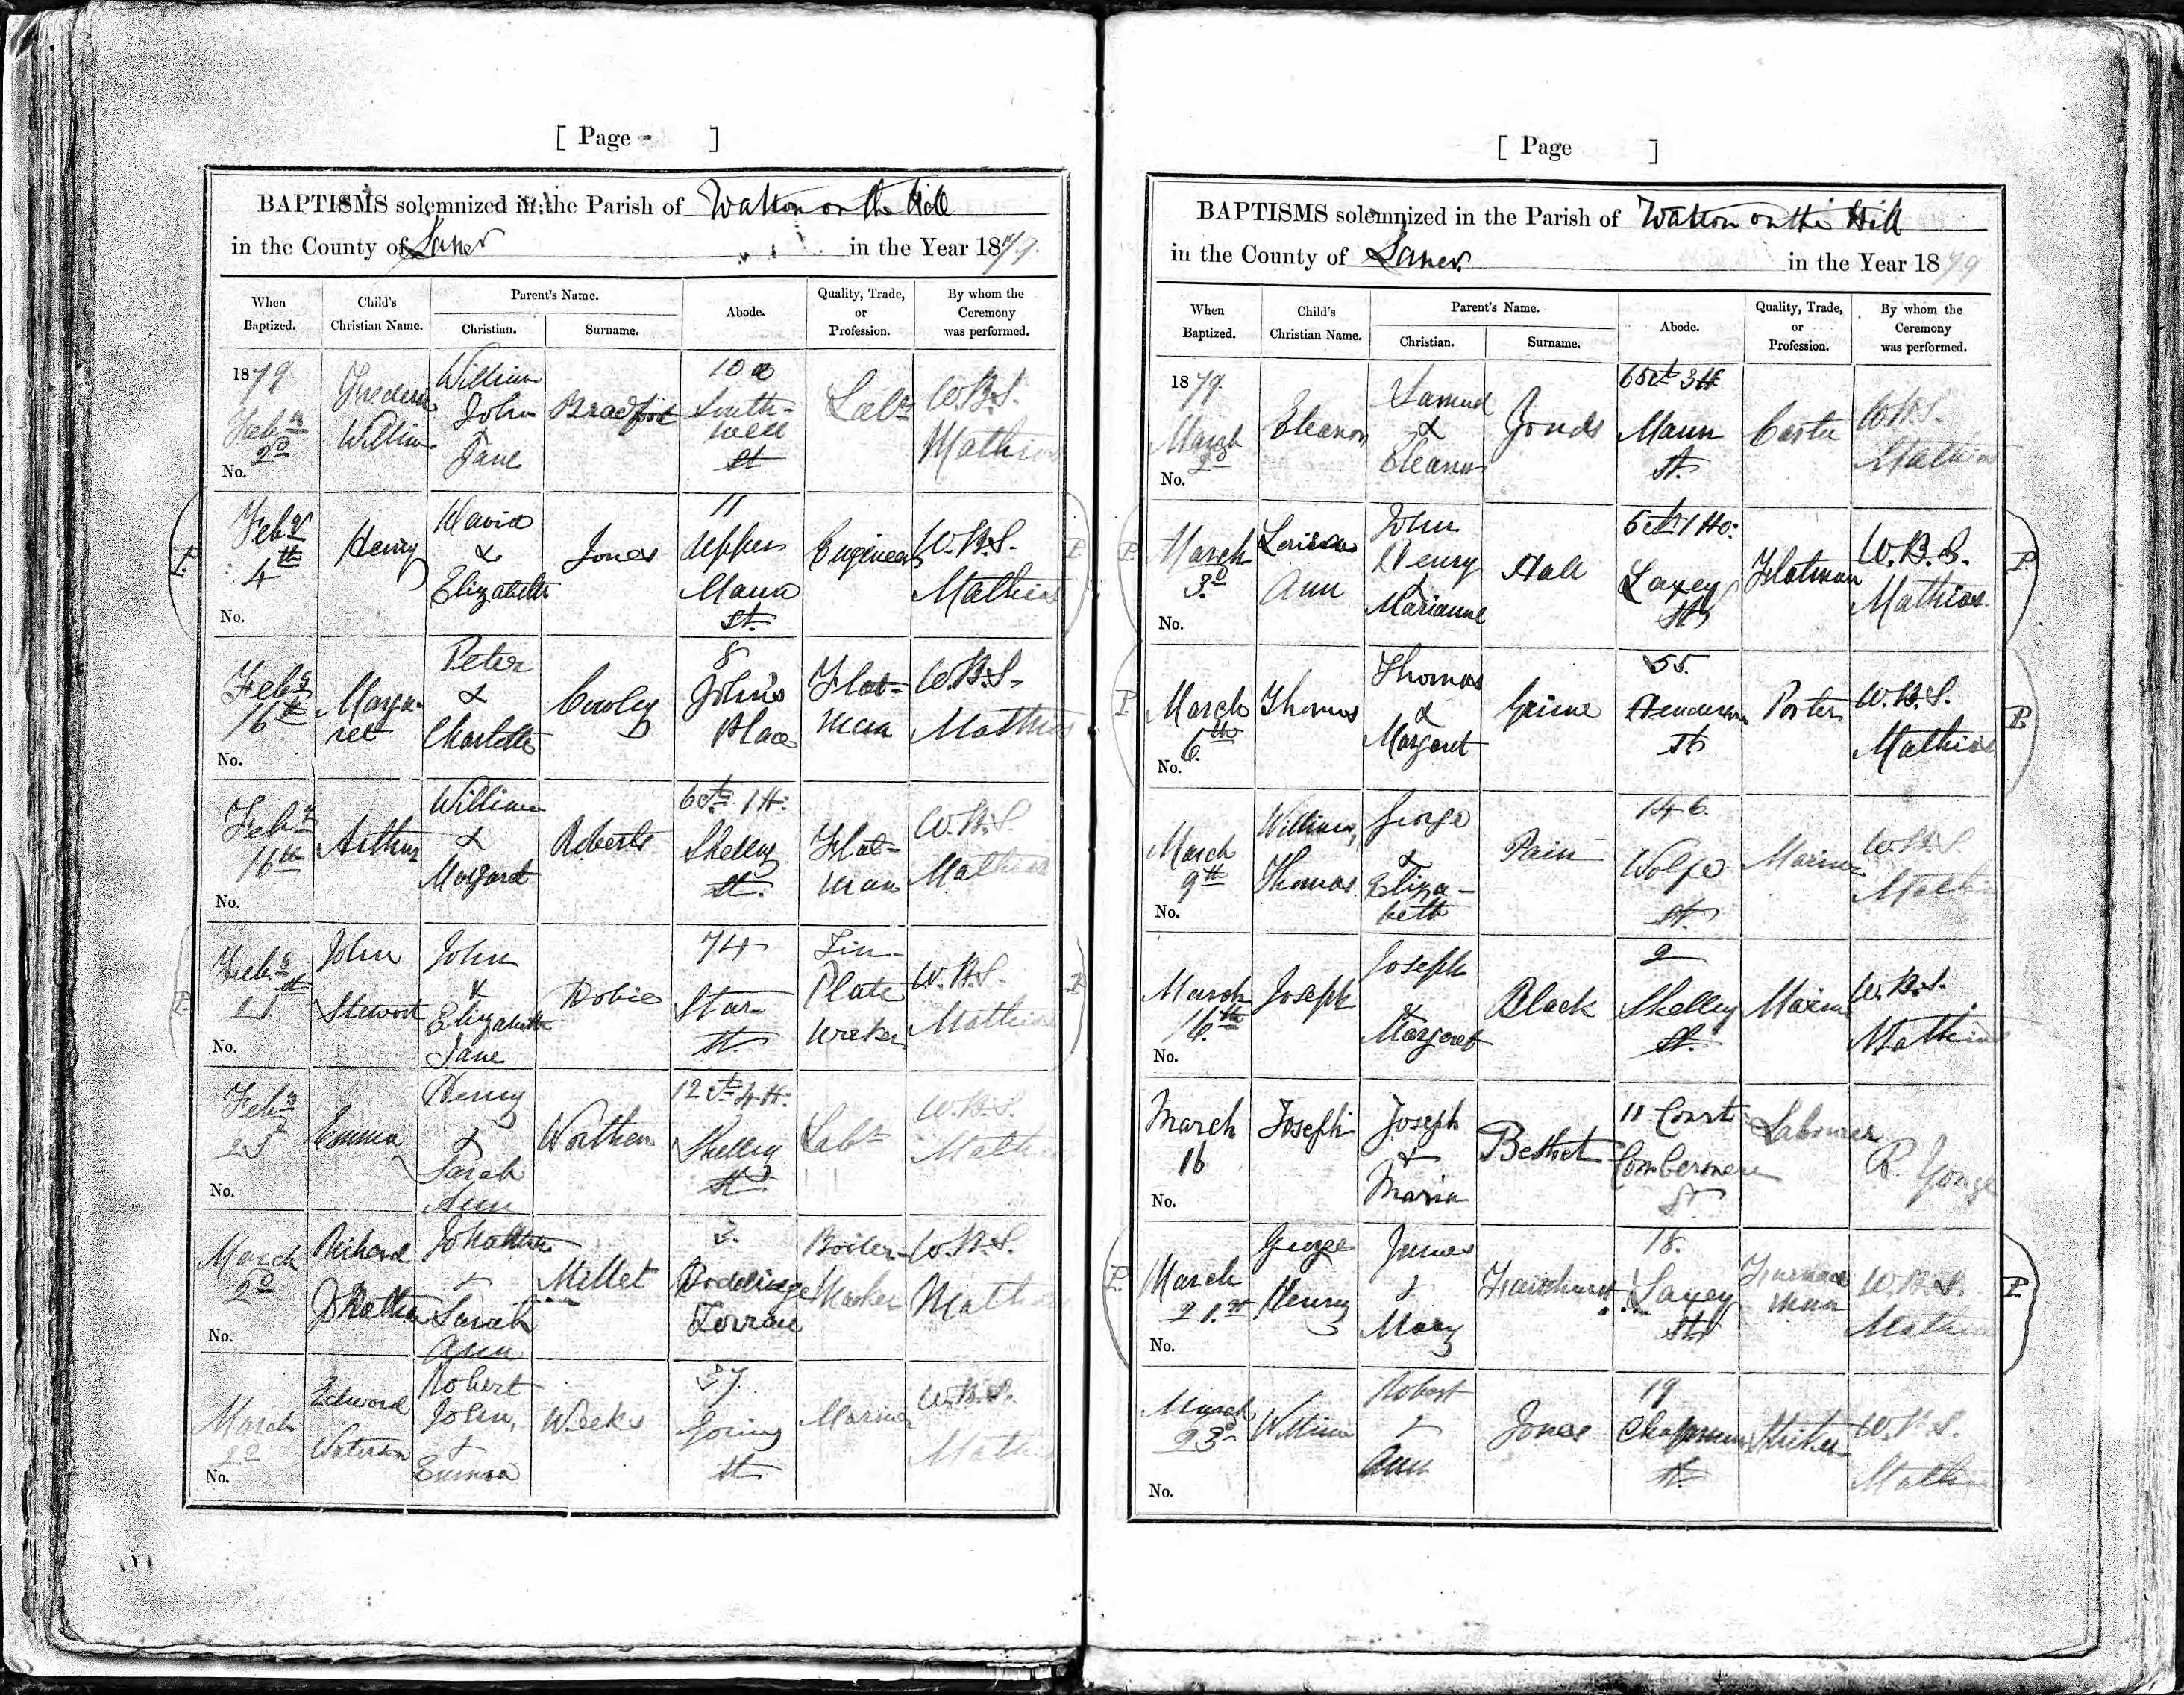 [ Page ]
BAPTISMS solemnized in the Parish of Walton on the Hill
in the County of Lancr in the Year 1879.
When Baptized.
Child's Christian Name.
Parent's Name.
Christian.
Surname.
Abode.
Quality, Trade, or Profession.
By whom the Ceremony was performed.
1879
Feby 2d
No.
William
William John
Jane
Bradford
10
South-
well
St
Labr
W.B.S.
Mathias
P.
Feby
4th
No.
Henry
David
&
Elizabeth
Jones
11
Upper
Mann
St.
Engineer
W.B.S.
Mathias
P.
Feby
16th
No.
Marga-
ret
Peter
&
Charlotte
Cowley
8
John's
Place
Flat-
man
W.B.S.
Mathias
Feby
16th
No.
Arthur
William
&
Margaret
Roberts
6 Ct. 1 H:
Shelley
St.
Flat-
man
W.B.S.
Mathias
P.
Feby
No.
John
Stewart
John
&
Elizabeth
Jane
Dobie
74
Star
St.
Tin-
Plate
Worker
W.B.S.
Mathias
P.
Feby
23
No.
Emma
Henry
&
Sarah
Ann
Worthen
12 Ct 4 H:
Shelley
St.
Labr
W.B.S.
Mathias
March
2d
No.
Richard
Jonathan
Jonathan
&
Sarah
Ann
Millet
3.
Terrace
Boiler-
Maker
W.B.S.
Mathias
March
2d
No.
Edward
Robert
John
&
Emma
Weeks
37.
Goring
St
Mariner
W.B.S.
Mathias
[ Page ]
BAPTISMS solemnized in the Parish of Walton on the Hill
in the County of Lancr. in the Year 1879
When Baptized.
Child's Christian Name.
Parent's Name.
Christian.
Surname.
Abode.
Quality, Trade, or Profession.
By whom the Ceremony was performed.
1879.
March
No.
Eleanor
Samuel
&
Eleanor
6 Ct 3 H
Mann
St.
Carter
W.B.S.
Mathias
P.
March
3d
No.
Ann
John
Henry
&
Marianne
Hall
5 Ct 1 Ho:
Laxey
St
Flatman
W.B.S.
Mathias
P.
P.
March
6th
No.
Thomas
Thomas
&
Margaret
Grime
55.
Henderson
St
Porter
W.B.S.
Mathias
P.
March
9th
No.
William
Thomas
George
&
Eliza-
beth
Pain
146
Wolfe
St.
Mariner
W.B.S.
Mathias
March
16th
No.
Joseph
Joseph
&
Margaret
Black
2
Shelley
St.
Mariner
W.B.S.
Mathias
March
16
No.
Joseph
Joseph
&
Maria
Bethet
11 Court
Combermere
St
Labourer
R. Yonge
P.
March
21st
No.
George
Henry
James
&
Mary
Fairhurst
18.
Laxey
St
Furnace
man
W.B.S.
Mathias
P.
March
23d
No.
William
Robert
&
Ann
Jones
19
Chapman
St.
W.B.S.
Mathias